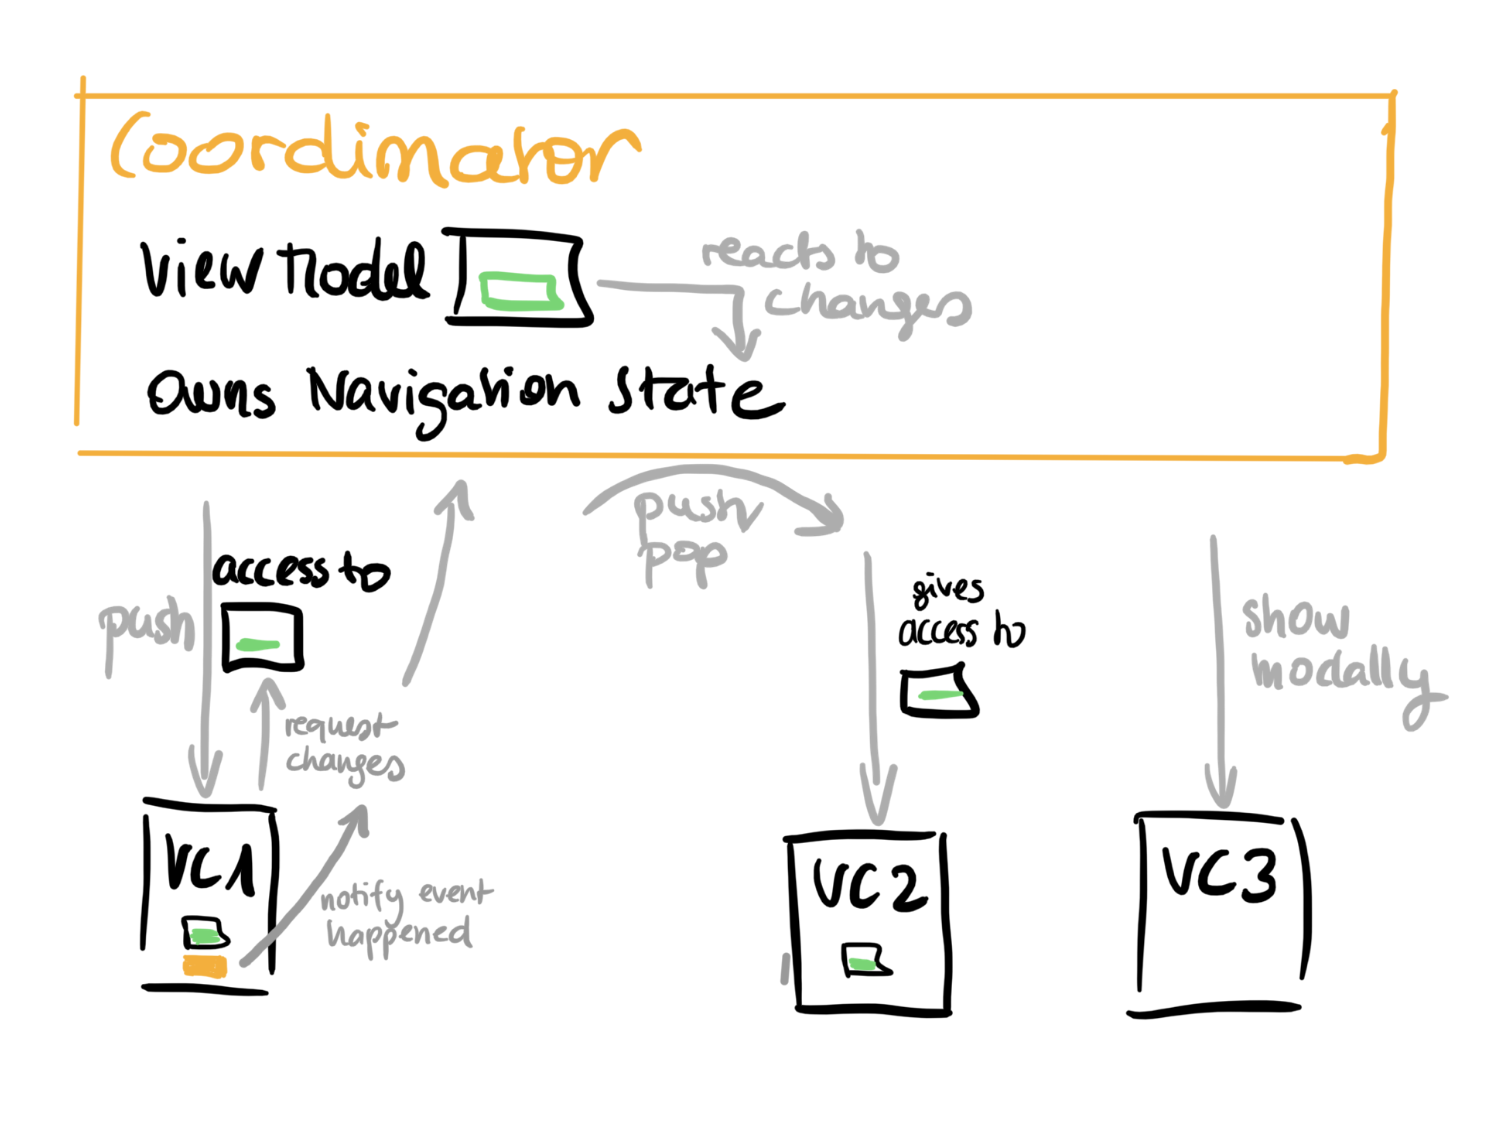 Coordinator
View Model
reacts to
changes
Owns Navigation State
push
access to
request
changes
notify event
happened
push
pop
gives
access to
show
modally
VC1
VC2
VC3